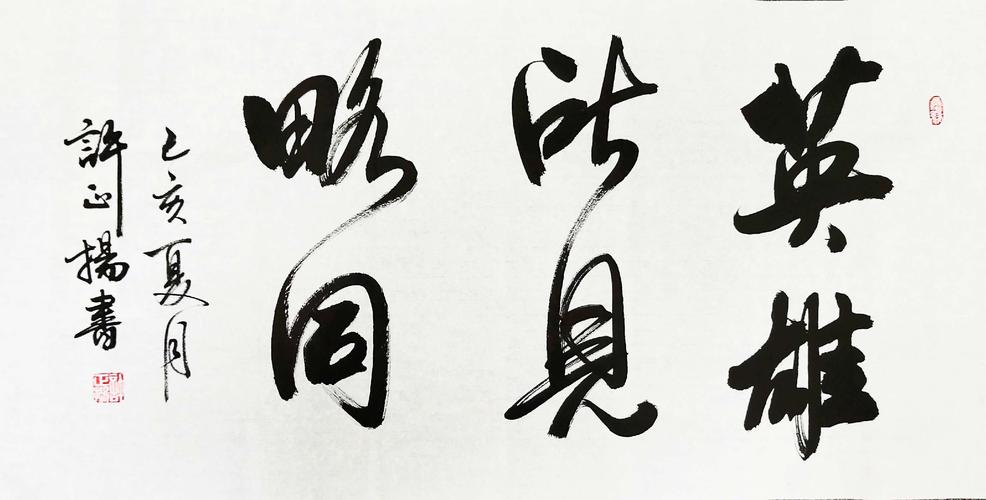 英雄
所見
略同
己亥夏月
許正揚書